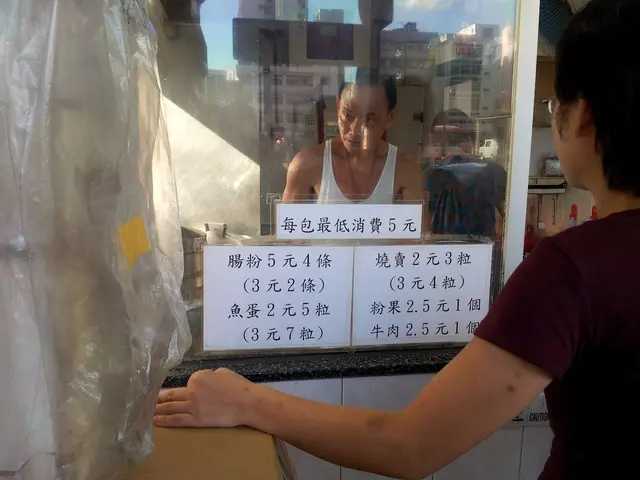 每包最低消費5元
腸粉5元4條
(3元2條)
魚蛋2元5粒
(3元7粒)
燒賣2元3粒
(3元4粒)
粉果2.5元1個
牛肉2.5元1個
CAUTION